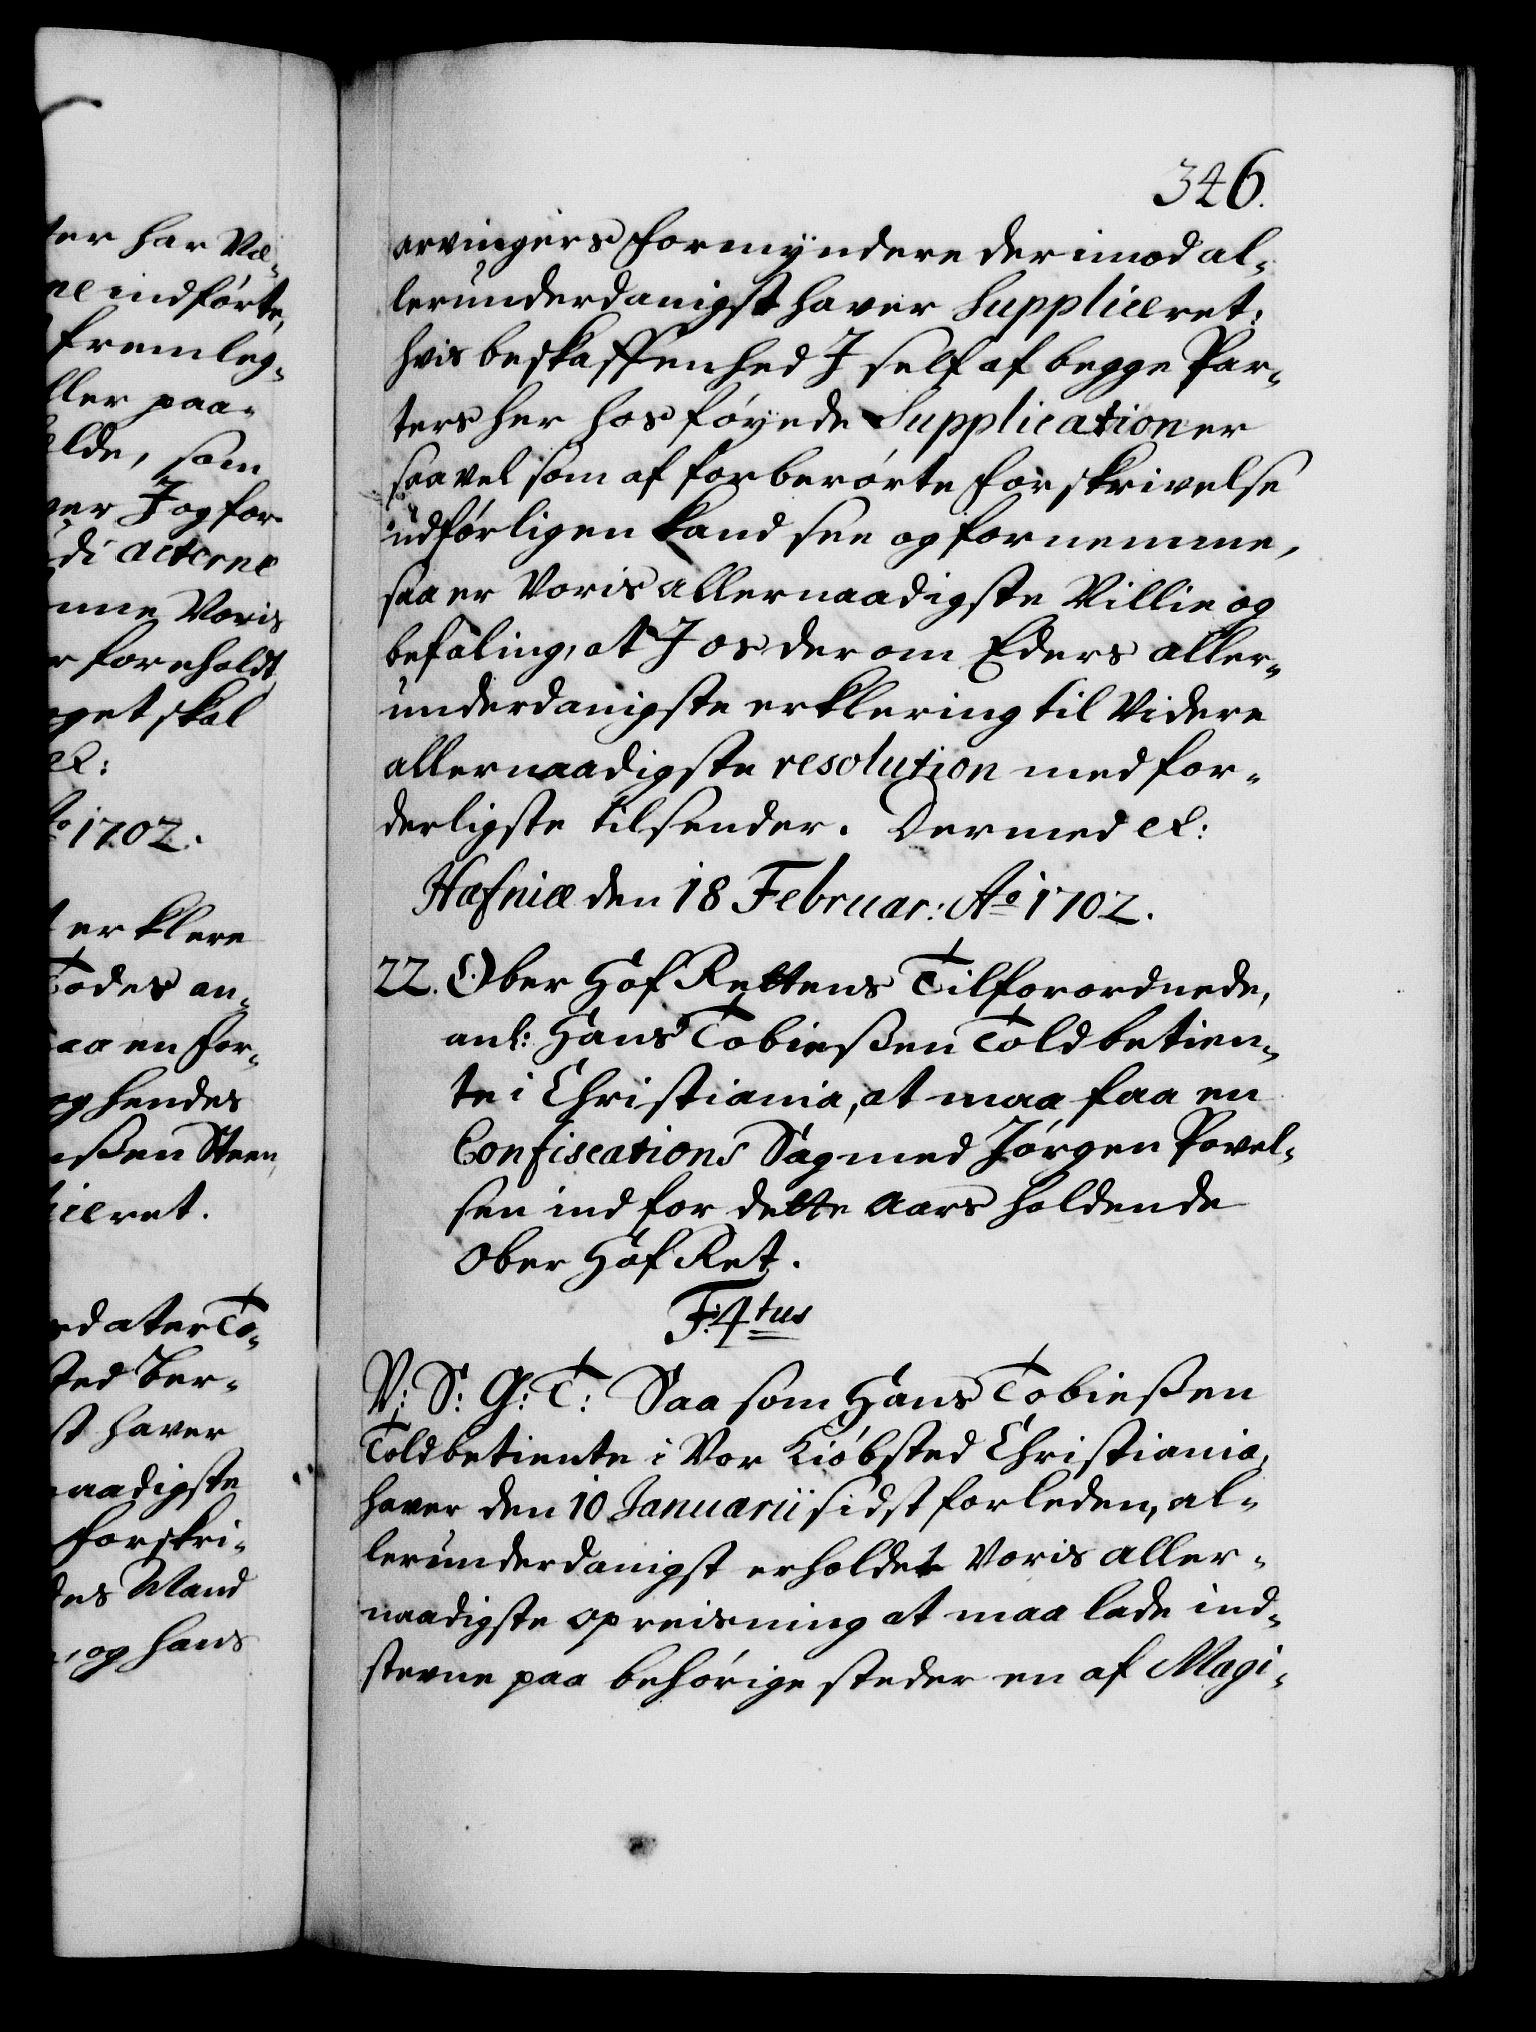 346.
arvingers formyndere der imod al-
lerunderdanigst haver Suppliceret:
hvis beskaffenhed I self af begge Par-
ters her hos føyede Supplicationer
saavel som af forberørte forskrivelse
udførligen kand see og fornemme,
saa er Voris allernaadigste Villie og
befaling, at I os der om Eders aller-
underdanigste erklering til Videre
allernaadigste resolution med for-
derligste tilsender. Dermed etc:
Hafniæ den 18 Februar: Ao 1702.
22. Ober Hof Rettens Tilforordnede,
anl: Hans Tobieszen Toldbetien-
te i Christiania, at maa faa en
Confiscations Sag med Jørgen Povel-
sen ind for dette Aars holdende
Ober Hof Ret.
F: 4tus
V: S: G: T: Saa som Hans Tobieszen
Toldbetiente i Vor Kiøbsted Christiania,
haver den 10 Januarii sidst forleden, al-
lerunderdanigst erholdet Voris aller-
naadigste opreisning at maa lade ind-
stevne paa behørige steder en af Magi-
ter har Væ-
ne indførte,
fremleg-
ller paa-
elde, som
ver I og for
di acterne
nne Voris
r foreholdt
get skal
etc:
o 1702.
t erklere
Todes an-
aa en for-
og hendes
szen Steen
iceret.
edater To-
sted Ber-
st haver
naadigste
forskri-
des Mand
, og hans